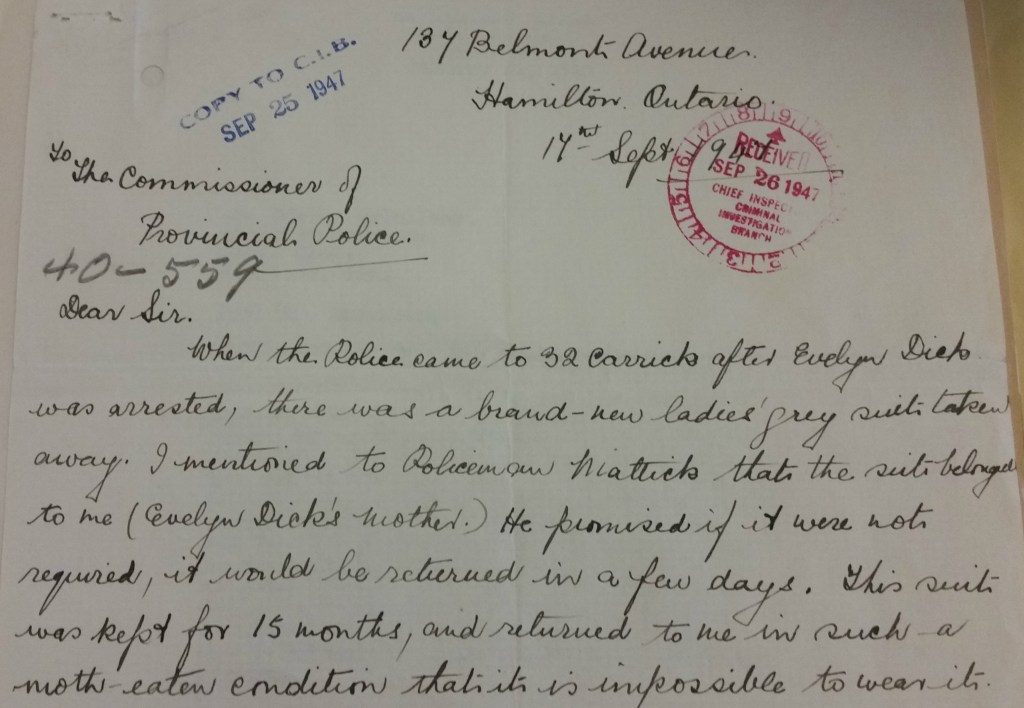 COPY TO C.I.B.
SEP 25 1947
137 Belmont Avenue.
Hamilton. Ontario.
17th Sept. 1947
8 9 10
7
6
5
4
3 2
RECEIVED
SEP 26 1947
CHIEF INSPEC
CRIMINAL
INVESTIGATION
BRANCH
To
The Commissioner of
Provincial Police.
40-559
Dear Sir.
When the Police came to 32 Carrick after Evelyn Dick
was arrested, there was a brand-new ladies' grey suit taken
away. I mentioned to Policeman Mattick that the suit belonged
to me (Evelyn Dick's Mother.) He promised if it were not
required, it would be returned in a few days. This suit
was kept for 15 months, and returned to me in such a
moth-eaten condition that it is impossible to wear it.